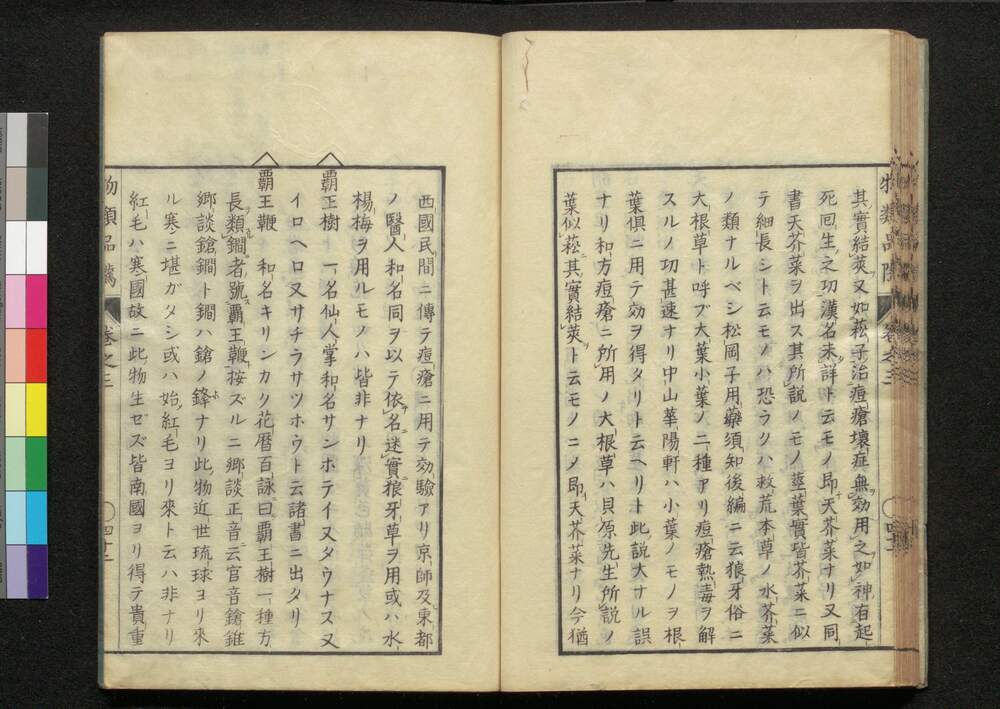 其實結莢又如菘子治痘瘡壞症無効用之如神有起
死回生之功漢名未詳ト云モノ即天芥菜ナリ又同
書天芥菜ヲ出ス其所說ノモノ莖葉實皆芥菜ニ似
テ細長シト云モノハ恐ラクハ救荒本草ノ水芥菜
ノ類ナルベシ松岡子用藥須知後編ニ云狼牙俗ニ
大根草ト呼ブ大葉小葉ノ二種アリ痘瘡熱毒ヲ解
スルノ功甚速ナリ中山華陽軒ハ小葉ノモノヲ根
葉俱ニ用テ効ヲ得タリト云ヘリト此說大ナル誤
ナリ和方痘瘡ニ所用ノ大根草ハ貝原先生所說ノ
葉似菘其實結莢ト云モノニメ即天芥菜ナリ今猶
物類品隲 卷之三
西國民間ニ傳テ痘瘡ニ用テ効驗アリ京師及東都
ノ醫人和名同ヲ以テ依名迷實狼牙草ヲ用或ハ水
楊梅ヲ用ルモノハ皆非ナリ
覇王樹 一名仙人掌和名サンホテイ又タウナス又
イロヘロ又サチラサツホウト云諸書ニ出タリ
覇王鞭 和名キリンカク花曆百詠曰覇王樹一種方
長類鐧者號覇王鞭按ズルニ鄉談正音云官音鎗錐
鄉談鎗鐧ト鐧ハ鎗ノ鋒ナリ此物近世琉球ヨリ來
ル寒ニ堪ガタシ或ハ始紅毛ヨリ來ト云ハ非ナリ
紅毛ハ寒國故ニ此物生ゼズ皆南國ヨリ得テ貴重
物類品隲 卷之三 四十二